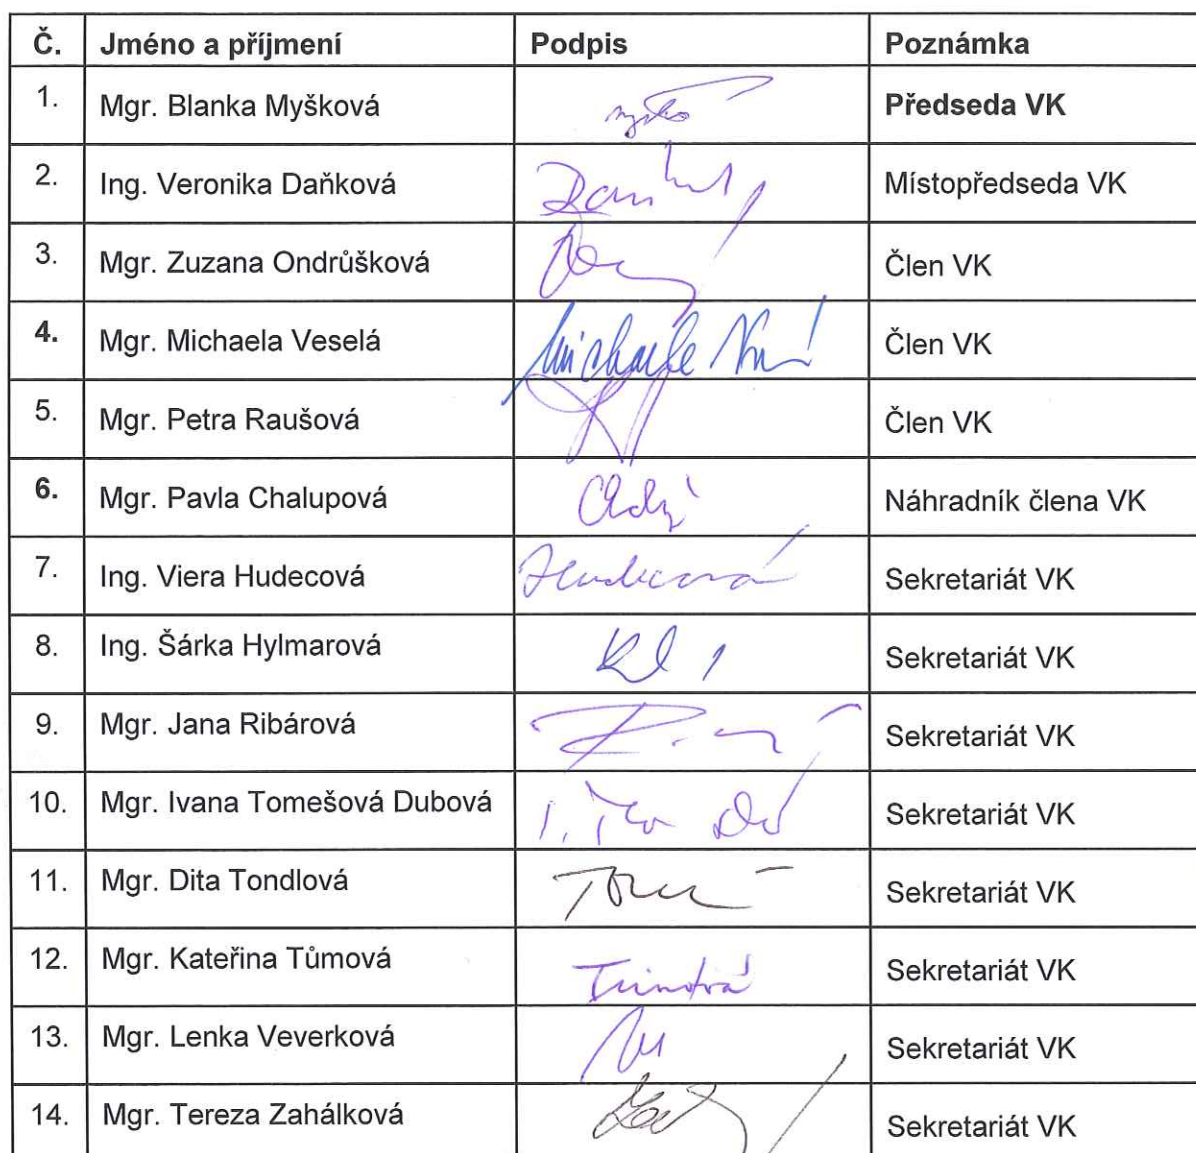 Č. Jméno a příjmení Podpis Poznámka
1. Mgr. Blanka Myšková Předseda VK
2. Ing. Veronika Daňková Místopředseda VK
3. Mgr. Zuzana Ondrůšková Člen VK
4. Mgr. Michaela Veselá Člen VK
5. Mgr. Petra Raušová Člen VK
6. Mgr. Pavla Chalupová Náhradník člena VK
7. Ing. Viera Hudecová Hudecová Sekretariát VK
8. Ing. Šárka Hylmarová Sekretariát VK
9. Mgr. Jana Ribárová Sekretariát VK
10. Mgr. Ivana Tomešová Dubová Sekretariát VK
11. Mgr. Dita Tondlová Sekretariát VK
12. Mgr. Kateřina Tůmová Sekretariát VK
13. Mgr. Lenka Veverková Sekretariát VK
14. Mgr. Tereza Zahálková Sekretariát VK